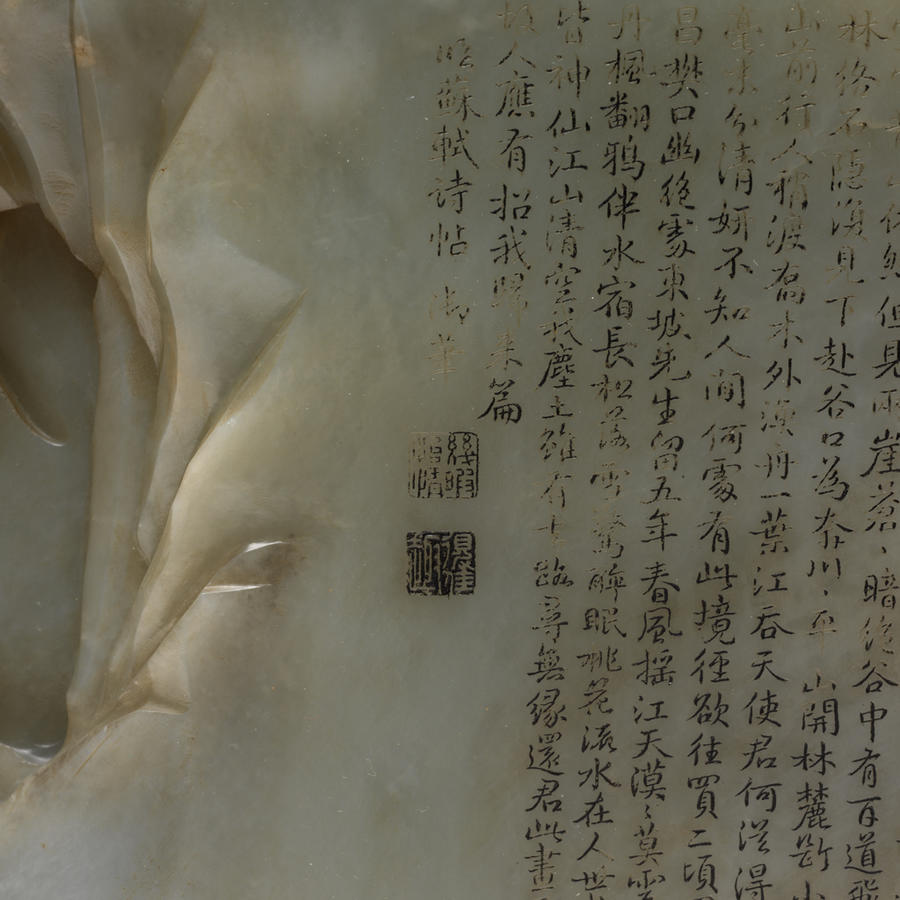 依然但見兩崖蒼、暗絕谷中有百道飛
林絡石隱復見下赴谷口為奔川、平山開林麓斷小
山前行人稍渡喬木外漁舟一葉江吞天使君何從得
毫末分清妍不知人間何處有此境徑欲往買二頃
昌樊口幽絕處東坡先生留五年春風搖江天漠、莫雲
丹楓翻鴉伴水宿長松落雪驚醉眠桃花流水在人世
皆神仙江山清空我塵土雖有去路尋無緣還君此畫
故人應有招我歸來篇
臨蘇軾詩帖 御筆
幾暇怡情
得佳趣